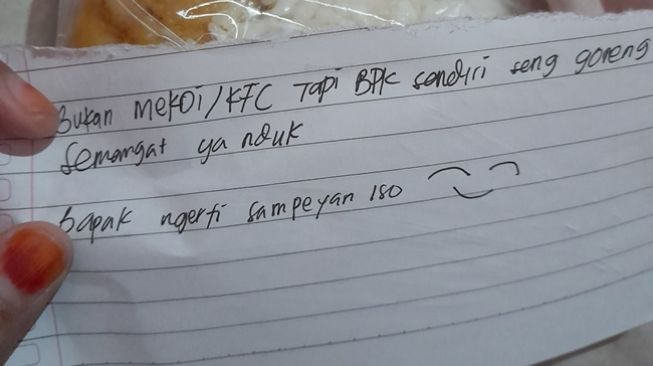 Bukan MekDi/KFC Tapi BPK sendiri seng goreng
Semangat ya nduk
bapak ngerti sampeyan iso